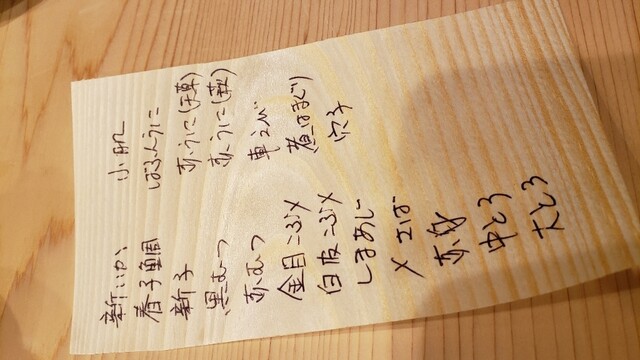 新いか
春子鯛
新子
黒むつ
赤むつ
金目こぶ〆
白皮こぶ〆
しまあじ
〆さば
赤身
中とろ
大とろ
小肌
ばふんうに
赤うに(天草)
赤うに
車えび
煮はまぐり
穴子